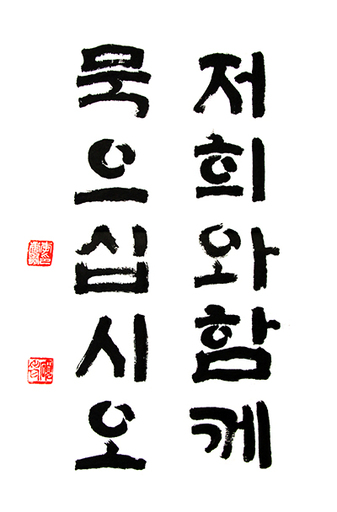 저희와함께
묵으십시오